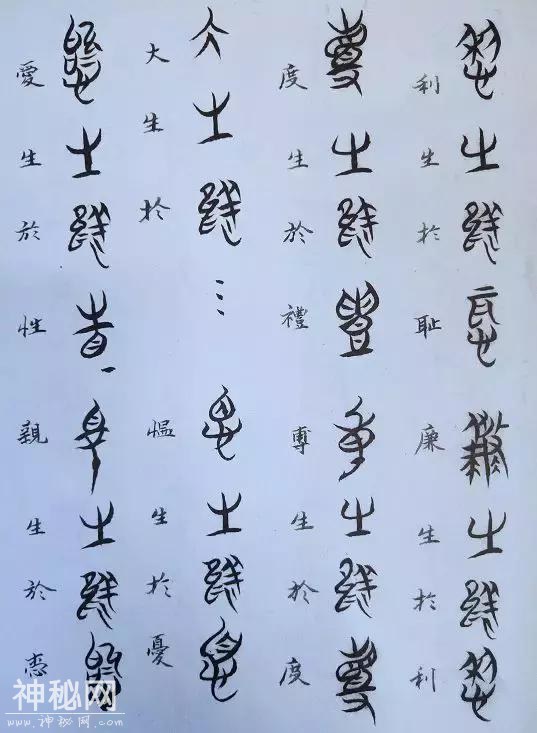 利生於恥廉生於利
度生於禮尃生於度
大生於…慍生於憂
愛生於性親生於
神秘网
www.神秘网.com